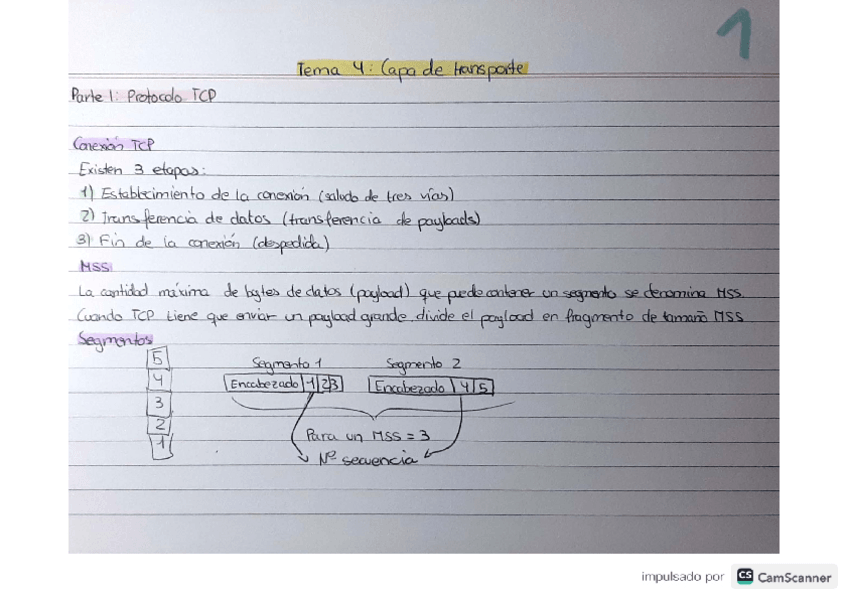 1
Tema 4: Capa de transporte
Parte 1: Protocolo TCP
Conexión TCP
Existen 3 etapas:
1) Establecimiento de la conexión (saludo de tres vías)
2) Transferencia de datos (transferencia de payloads)
3) Fin de la conexión (despedida)
MSS
La cantidad máxima de bytes de datos (payload) que puede contener un segmento se denomina MSS.
Cuando TCP tiene que enviar un payload grande, divide el payload en fragmento de tamaño MSS
Segmentos
5
4
3
2
1
Segmento 1 Segmento 2
Encabezado 1 2 3 Encabezado 4 5
Para un MSS = 3
Nº secuencia
impulsado por CS CamScanner